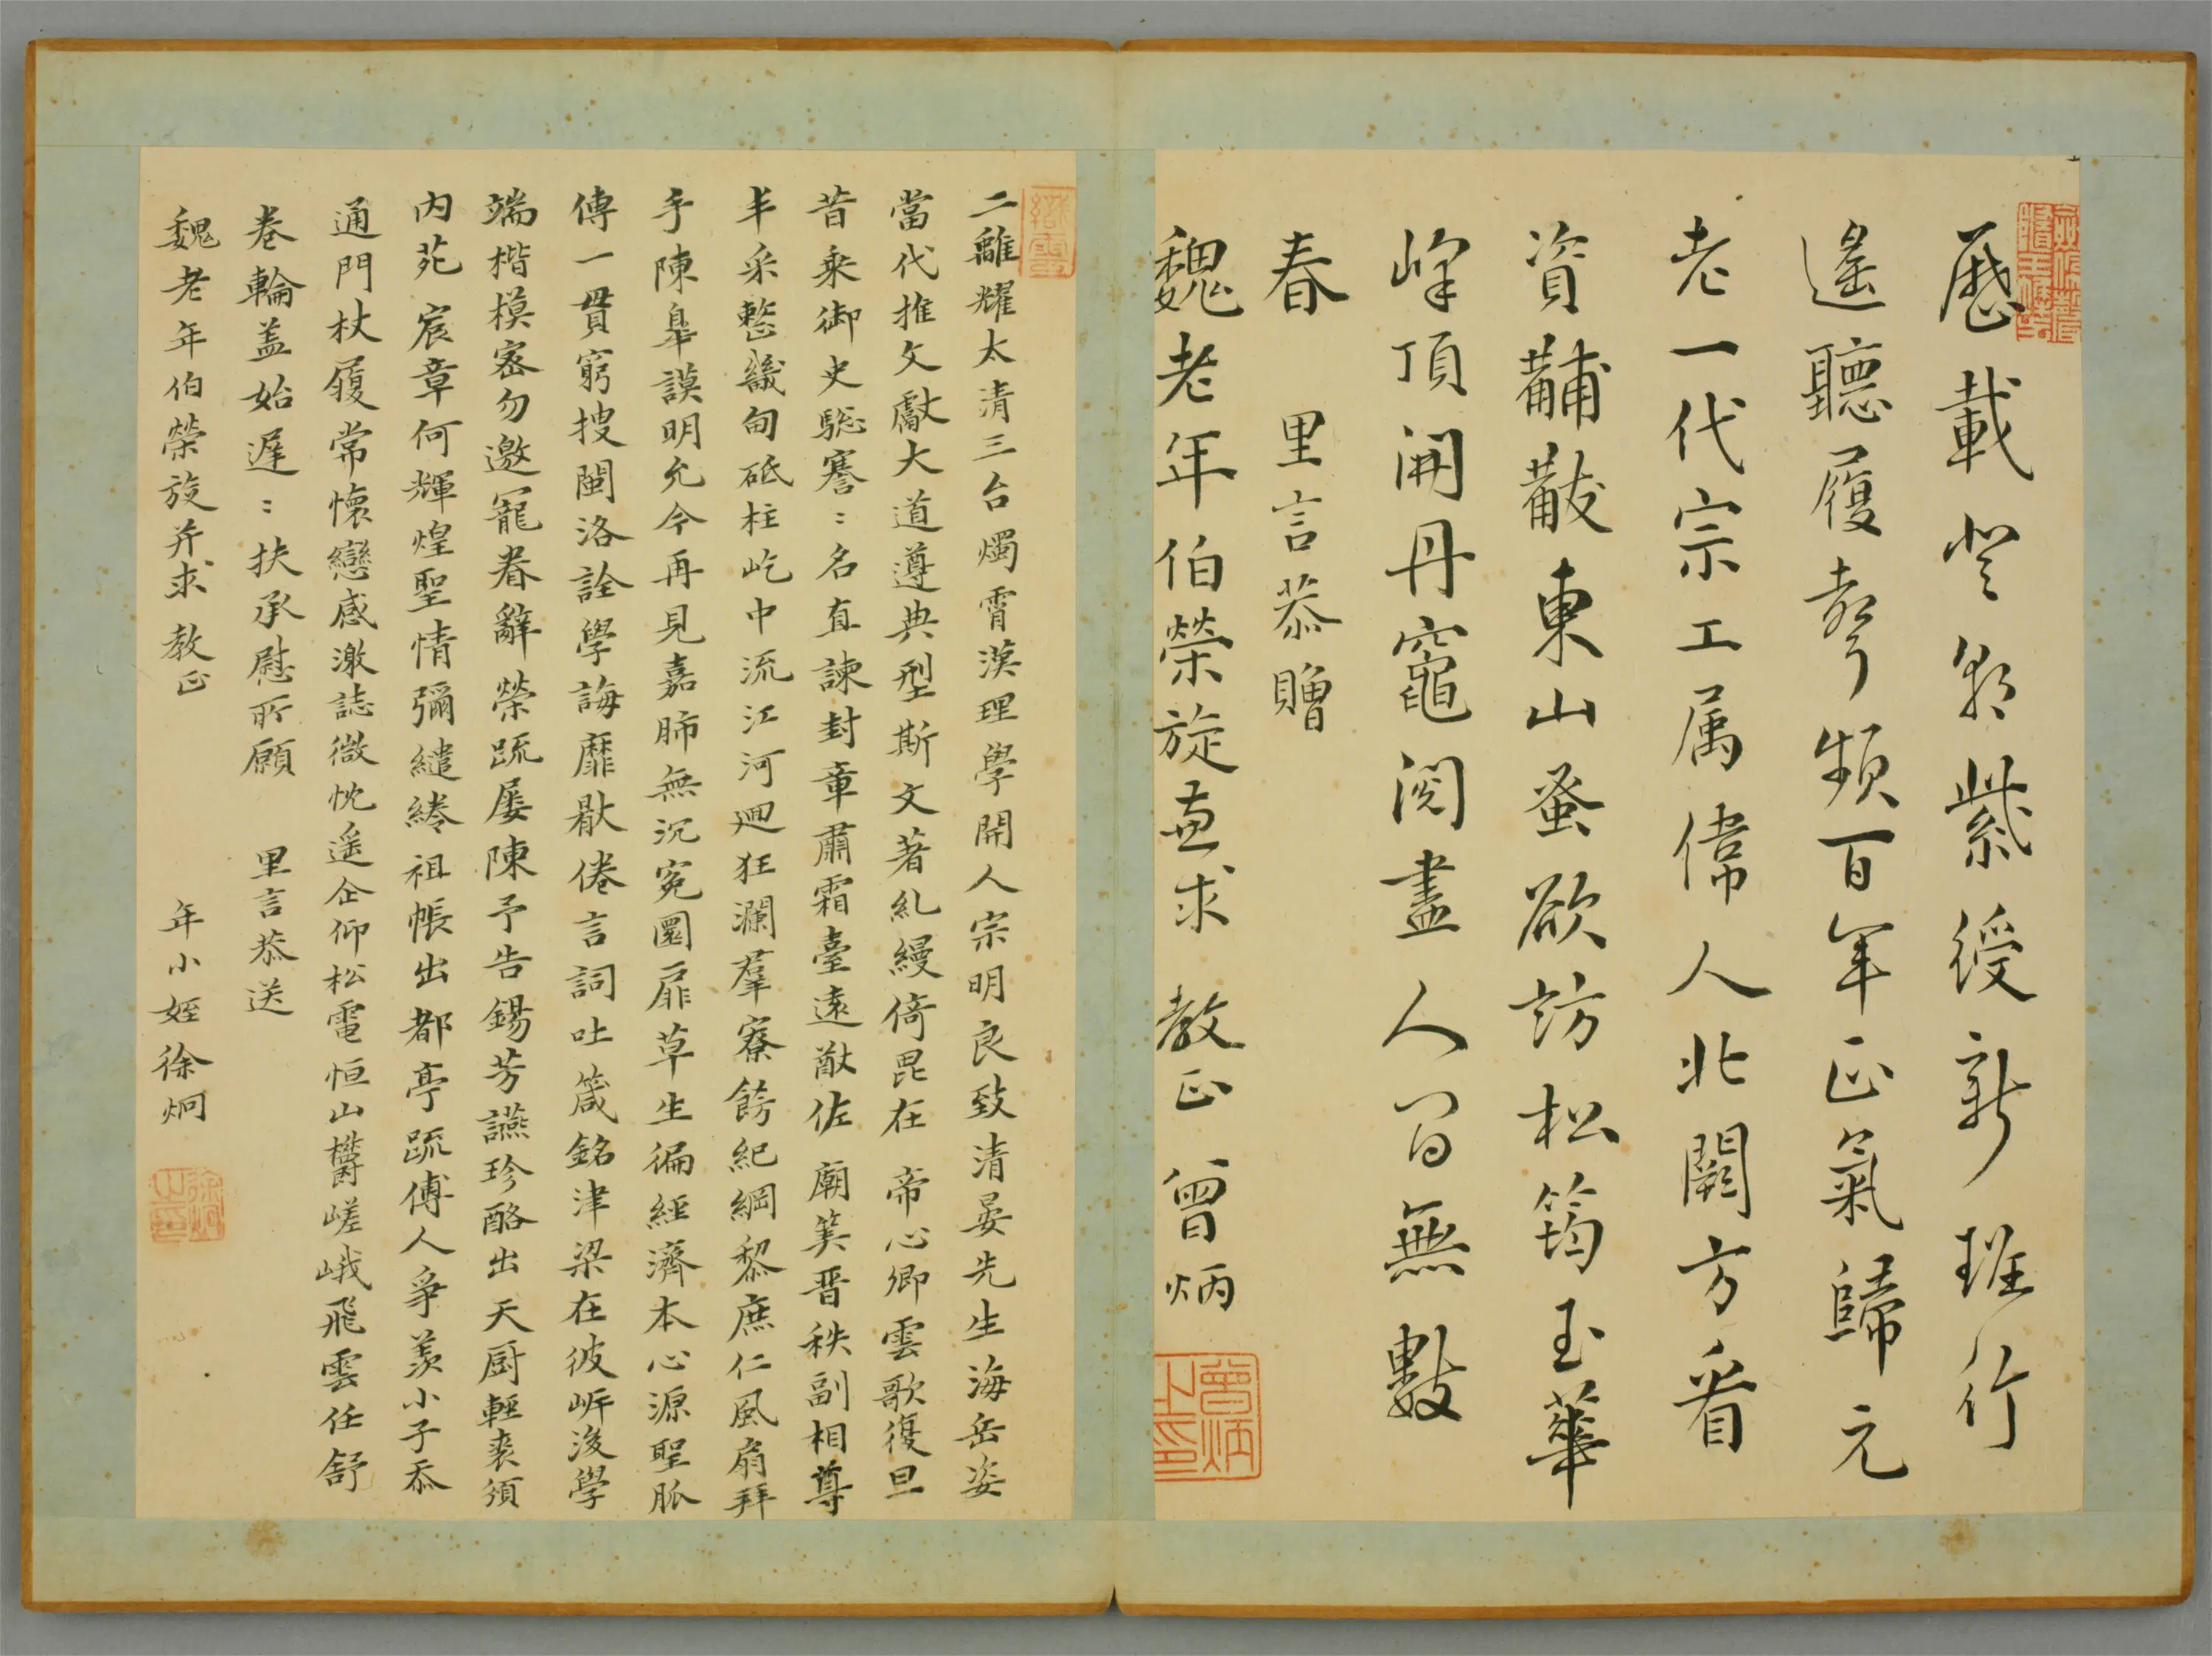 歷載登朝紫綬新班行
遙聽履聲頻百年正氣歸元
老一代宗工属偉人北闕方看
資黼黻東山蚤欲訪松筠玉華
峰頂開丹竈閱盡人間無數
春 里言恭贈
魏老年伯榮旋並求 教正 曾炳
曾炳之印
二離耀太清三台燭霄漢理學開人宗明良致清晏先生海岳姿
當代推文獻大道遵典型斯文著糺縵倚毘在 帝心卿雲歌復旦
昔乘御史驄謇:名直諫封章肅霜臺遠猷佐 廟筭晋秩副相尊
丰采憗畿甸砥柱屹中流江河迴狂瀾羣寮飭紀綱黎庶仁風扇拜
手陳臯謨明允今再見嘉肺無沉寃圜扉草生徧經濟本心源聖脈
傳一貫窮搜閩洛詮學誨靡厭倦言詞吐箴銘津梁在彼岸後學
端楷模密勿邀寵眷辭榮疏屢陳予告錫芳讌珍酪出天厨輕裘須
内苑 宸章何輝煌聖情彌繾綣祖帳出都亭疏傅人爭羨小子忝
通門杖履常懷戀感激誌微忱遥企仰松電恒山欝嵯峨飛雲任舒
卷輪盖始遲:扶承慰所願 里言恭送
魏老年伯榮旋并求 教正 年小姪徐炯
徐炯之印